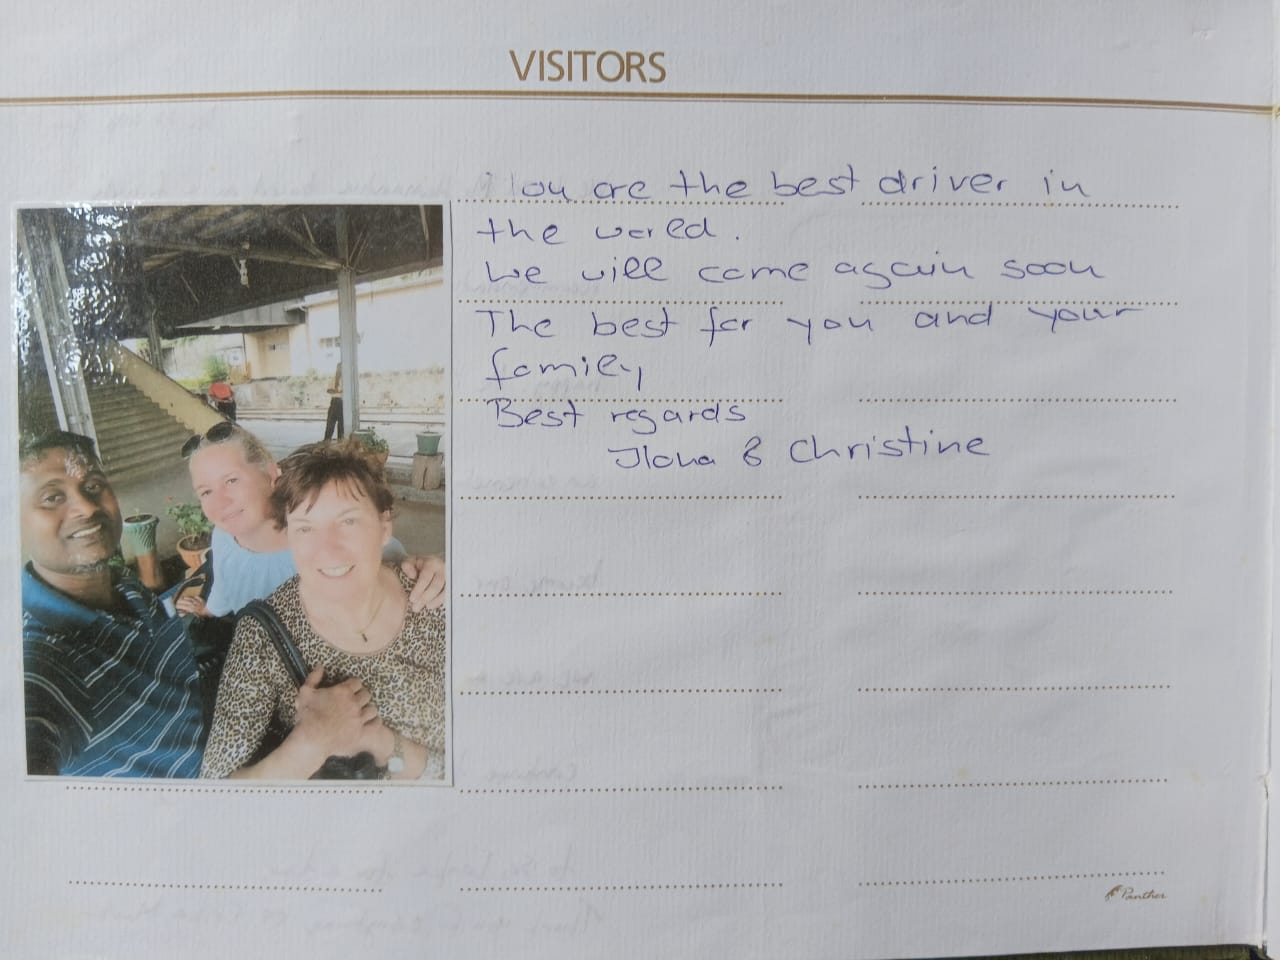 VISITORS
You are the best driver in
the world.
We will come again soon
The best for you and your
family
Best regards
Ilona & Christine
Panther